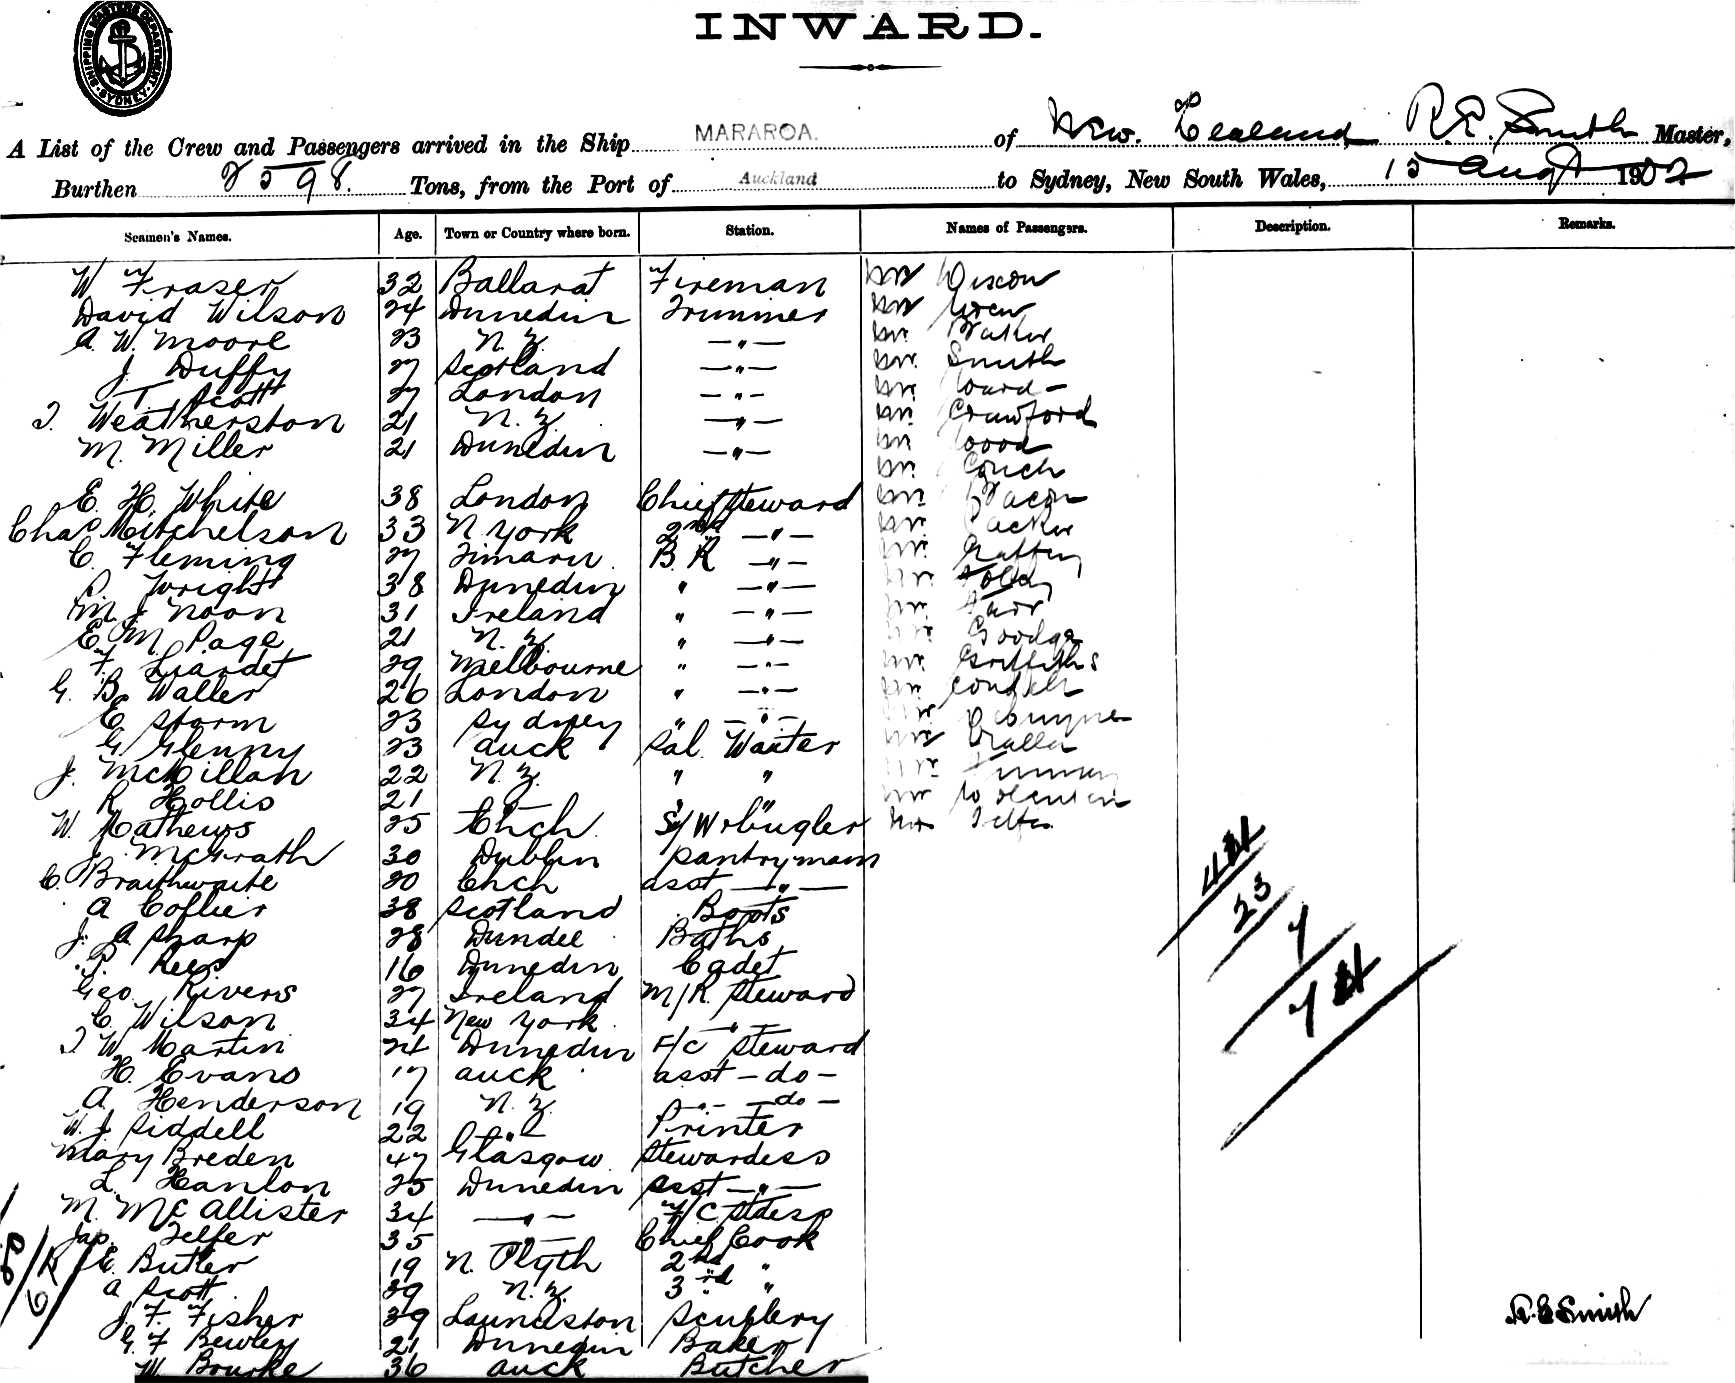 INWARD.
SHIPPING MASTERS DEPARTMENT SYDNEY
A List of the Crew and Passengers arrived in the Ship MARAROA. of New. Zealand R.E. Smith Master,
Burthen 2598. Tons, from the Port of Auckland to Sydney, New South Wales, 15 Augt 1902
Seamen's Names. Age. Town or Country where born. Station. Names of Passengers. Description. Remarks.
W Fraser 32 Ballarat Fireman Mr Dixon
David Wilson 24 Dunedin Trimmer Mr
A. W. Moore 23 N. Z. — " — Mr
J. Duffy 27 Scotland — " — Mr Smith
T. Scott 27 London — " — Mr
T. Weatherston 21 N. Z. — " — Mr Crawford
M. Miller 21 Dunedin — " — Mr Wood
Mr Couch
E. H. White 38 London Chief Steward Mr Bacon
Chas Mitchelson 33 N York 2nd — " — Mr Packer
C. Fleming 27 Timaru. B. R — " — Mr
P. Wright 38 Dunedin " — " — Mr
M J Noon 31 Ireland " — " — Mr
E. M. Page 21 N. Z. " — " — Mr
F. Liardet 29 Melbourne " — " — Mr Griffiths
G. B. Waller 26 London " — " — Mr
E Storm 23 Sydney " — " — Mr
G. Glenny 23 Auck Sal. Waiter Mr
J. McMillan 22 N. Z. " " Mr
R. Hollis 21 " " " Mr
W. Mathews 25 Chch. S/W & bugler Mr Telfer
J. McGrath 30 Dublin Pantryman
C. Braithwaite 20 Chch Asst — " —
A Collier 38 Scotland Boots
J. A Sharp 28 Dundee Baths
P. Rees 16 Dunedin Cadet
Geo. Rivers 27 Ireland M/R. Steward
C. Wilson 34 New York. — " —
T W Martin 24 Dunedin F/C Steward
H. Evans 17 Auck asst — do —
A. Henderson 19 N. Z. — " — — do —
W. J Siddell 22 — " — Printer
Mary Breden 47 Glasgow Stewardess
L. Hanlon 25 Dunedin Asst — " —
M. McAllister 34 — " — F/C Stdess
Jas. Telfer 35 — " — Chief Cook
E. Butler 19 N. Plyth 2nd "
A Scott 29 N. Z. 3rd "
J. F. Fisher 39 Launceston Scullery
G. F Bewley 21 Dunedin Baker
W. Bourke 36 Auck Butcher
23
R. E Smith